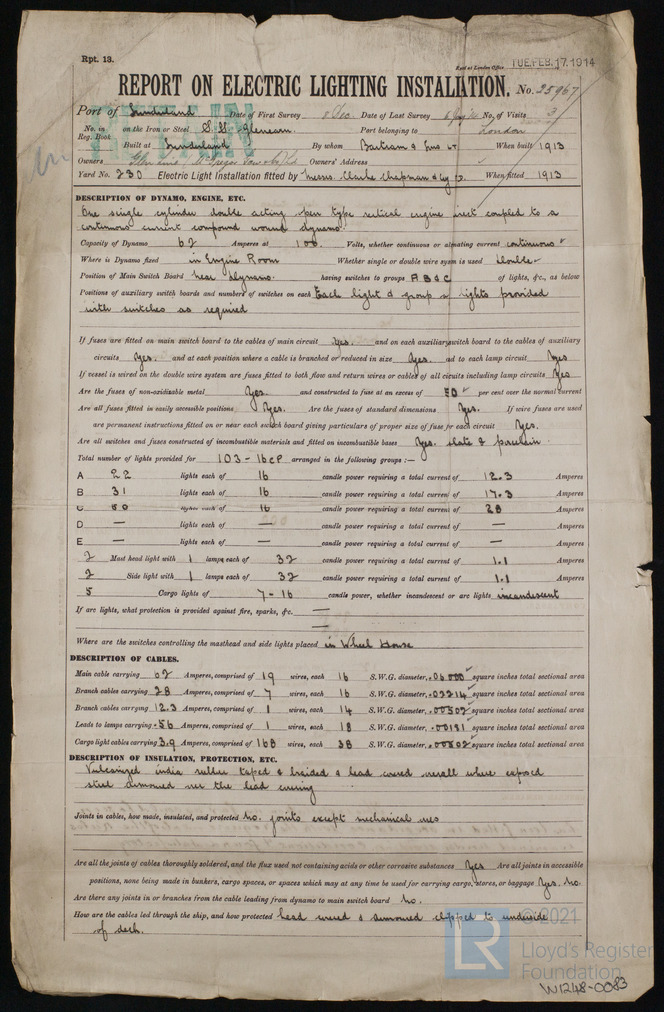 Rpt. 13.
Recd at London Office TUE. FEB. 17. 1914
REPORT ON ELECTRIC LIGHTING INSTALLATION. No. 25967
Port of Sunderland Date of First Survey 8 Dec. Date of Last Survey No. of Visits 3
No. in Reg. Book on the Iron or Steel S.S. Glenearn. Port belonging to London
Built at Sunderland By whom Bartram & Sons Ld When built 1913
Owners Owners' Address
Yard No. 230 Electric Light Installation fitted by Messrs. Clarke Chapman & Co When fitted 1913
DESCRIPTION OF DYNAMO, ENGINE, ETC.
One single cylinder double acting open type vertical engine direct coupled to a
continuous current compound wound dynamo.
Capacity of Dynamo 62 Amperes at 100 Volts, whether continuous or alternating current continuous
Where is Dynamo fixed in Engine Room Whether single or double wire system is used Double
Position of Main Switch Board near dynamo having switches to groups A B & C of lights, &c., as below
Positions of auxiliary switch boards and numbers of switches on each Each light & group of lights provided
with switches as required
If fuses are fitted on main switch board to the cables of main circuit Yes. and on each auxiliary switch board to the cables of auxiliary
circuits Yes. and at each position where a cable is branched or reduced in size Yes. and to each lamp circuit Yes
If vessel is wired on the double wire system are fuses fitted to both flow and return wires or cables of all circuits including lamp circuits Yes
Are the fuses of non-oxidizable metal Yes. and constructed to fuse at an excess of 50 per cent over the normal current
Are all fuses fitted in easily accessible positions Yes. Are the fuses of standard dimensions Yes. If wire fuses are used
are permanent instructions fitted on or near each switch board giving particulars of proper size of fuse for each circuit Yes.
Are all switches and fuses constructed of incombustible materials and fitted on incombustible bases Yes. slate & porcelain.
Total number of lights provided for 103 - 16 CP arranged in the following groups :—
A 22 lights each of 16 candle power requiring a total current of 12.3 Amperes
B 31 lights each of 16 candle power requiring a total current of 17.3 Amperes
C 50 lights each of 16 candle power requiring a total current of 28 Amperes
D — lights each of — candle power requiring a total current of — Amperes
E — lights each of — candle power requiring a total current of — Amperes
2 Mast head light with 1 lamps each of 32 candle power requiring a total current of 1.1 Amperes
2 Side light with 1 lamps each of 32 candle power requiring a total current of 1.1 Amperes
5 Cargo lights of 7 - 16 candle power, whether incandescent or arc lights incandescent
If arc lights, what protection is provided against fire, sparks, &c. —
—
Where are the switches controlling the masthead and side lights placed in Wheel House
DESCRIPTION OF CABLES.
Main cable carrying 62 Amperes, comprised of 19 wires, each 16 S.W.G. diameter, .06000 square inches total sectional area
Branch cables carrying 28 Amperes, comprised of 7 wires, each 16 S.W.G. diameter, .02214 square inches total sectional area
Branch cables carrying 12.3 Amperes, comprised of 1 wires, each 14 S.W.G. diameter, .00502 square inches total sectional area
Leads to lamps carrying .56 Amperes, comprised of 1 wires, each 18 S.W.G. diameter, .00181 square inches total sectional area
Cargo light cables carrying 3.9 Amperes, comprised of 168 wires, each 38 S.W.G. diameter, square inches total sectional area
DESCRIPTION OF INSULATION, PROTECTION, ETC.
Vulcanized india rubber taped & braided & lead covered overall where exposed
steel armoured over the lead covering
Joints in cables, how made, insulated, and protected No. joints except mechanical ones
Are all the joints of cables thoroughly soldered, and the flux used not containing acids or other corrosive substances Yes Are all joints in accessible
positions, none being made in bunkers, cargo spaces, or spaces which may at any time be used for carrying cargo, stores, or baggage Yes. No.
Are there any joints in or branches from the cable leading from dynamo to main switch board No.
How are the cables led through the ship, and how protected lead covered & armoured clipped to underside
of deck.
LR
© 2021
Lloyd's Register
Foundation
W1248-0083